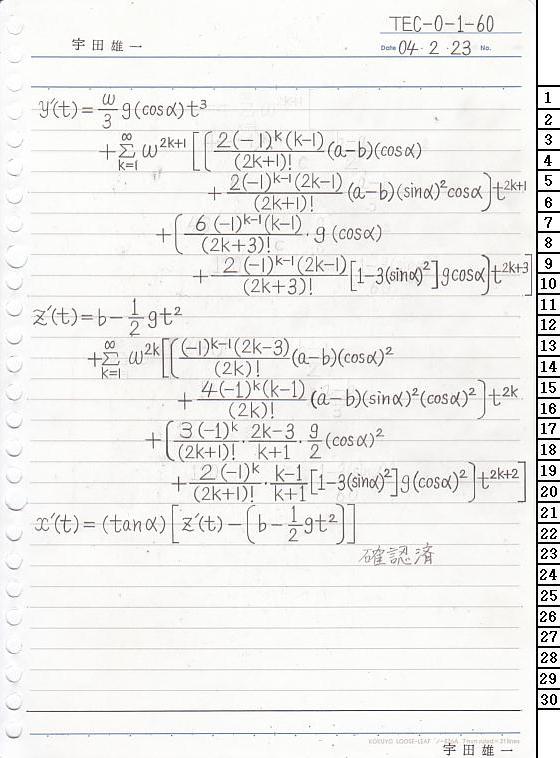 TEC-0-1-60
宇田雄一
Date 04・2・23 No.
y'(t)=ω/3 g(cosα)t³
+∞Σk=1 ω^2k+1[(2(-1)^k(k-1)/(2k+1)! (a-b)(cosα)
+2(-1)^k-1(2k-1)/(2k+1)! (a-b)(sinα)²cosα)t^2k+1
+(6(-1)^k-1(k-1)/(2k+3)!・g(cosα)
+2(-1)^k-1(2k-1)/(2k+3)! [1-3(sinα)²]g cosα)t^2k+3]
z'(t)=b-1/2 gt²
+∞Σk=1 ω^2k[((-1)^k-1(2k-3)/(2k)! (a-b)(cosα)²
+4(-1)^k(k-1)/(2k)! (a-b)(sinα)²(cosα)²)t^2k
+(3(-1)^k/(2k+1)!・2k-3/k+1・g/2 (cosα)²
+2(-1)^k/(2k+1)!・k-1/k+1 [1-3(sinα)²]g(cosα)²)t^2k+2]
x'(t)=(tanα)[z'(t)-(b-1/2 gt²)]
確認済
KOKUYO LOOSE-LEAF
宇田雄一
1
2
3
4
5
6
7
8
9
10
11
12
13
14
15
16
17
18
19
20
21
22
23
24
25
26
27
28
29
30